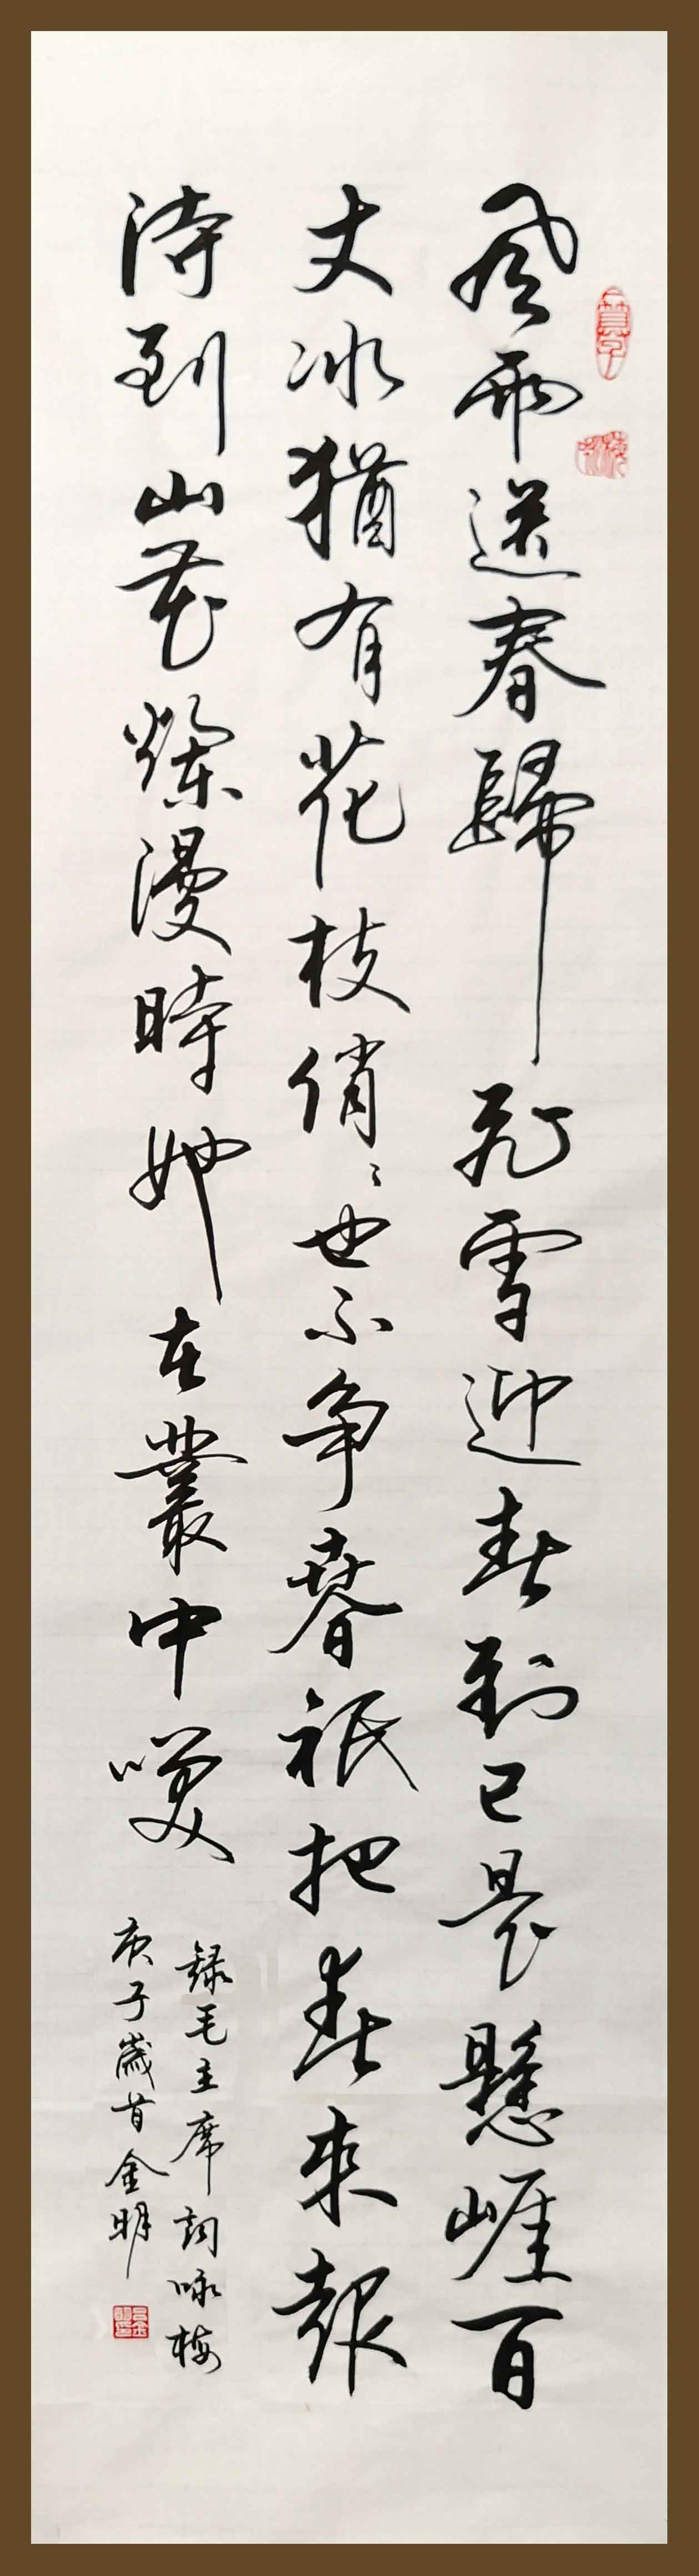 风雨送春歸飛雪迎春到已是懸崖百
丈冰猶有花枝俏〻也不争春祇把春來報
待到山花爛漫時她在叢中咲
録毛主席詞咏梅
庚子歲首金明